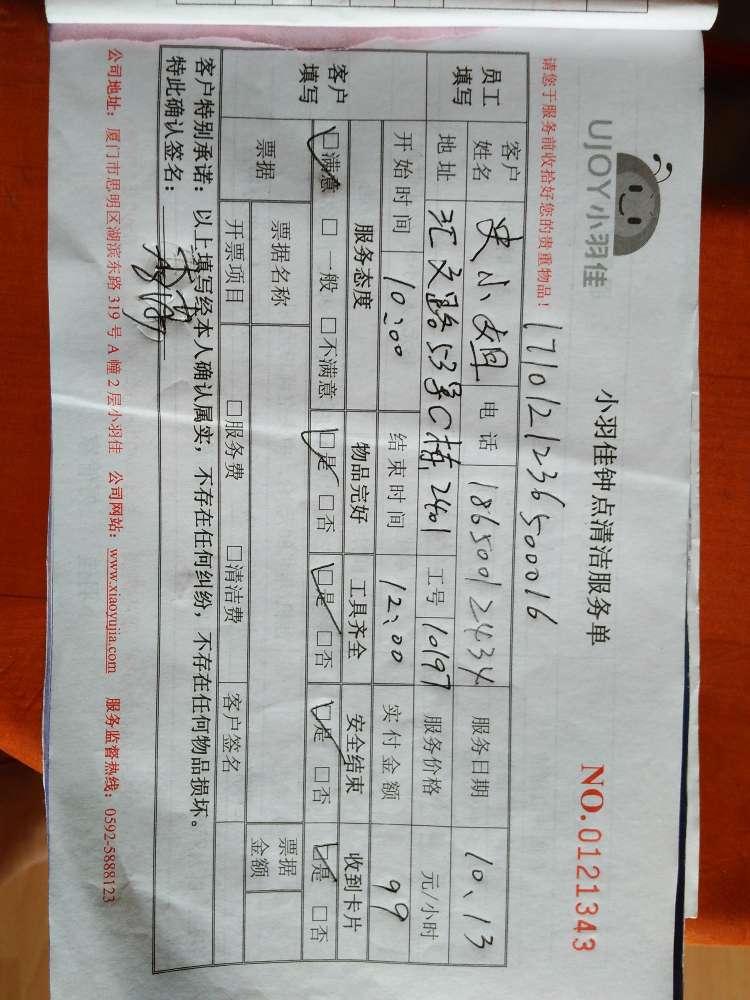 UJOY小羽佳
小羽佳钟点清洁服务单
NO.0121343
请您于服务前收拾好您的贵重物品！
171012123650016
员工填写
客户姓名 史小姐 电话 18650012434 服务日期 10.13
地址 汇文路53号C栋2401 工号 10197 服务价格 元/小时
开始时间 10:00 结束时间 12:00 实付金额 99
客户填写
服务态度 物品完好 工具齐全 安全结束 收到卡片
☑满意 □一般 □不满意 ☑是 □否 ☑是 □否 ☑是 □否 ☑是 □否
票据 票据名称 票据金额
开票项目 □服务费 □清洁费 客户签名
客户特别承诺：以上填写经本人确认属实，不存在任何纠纷，不存在任何物品损坏。
特此确认签名：
公司地址：厦门市思明区湖滨东路319号A幢2层小羽佳 公司网站：www.xiaoyujia.com 服务监督热线：0592-5888123